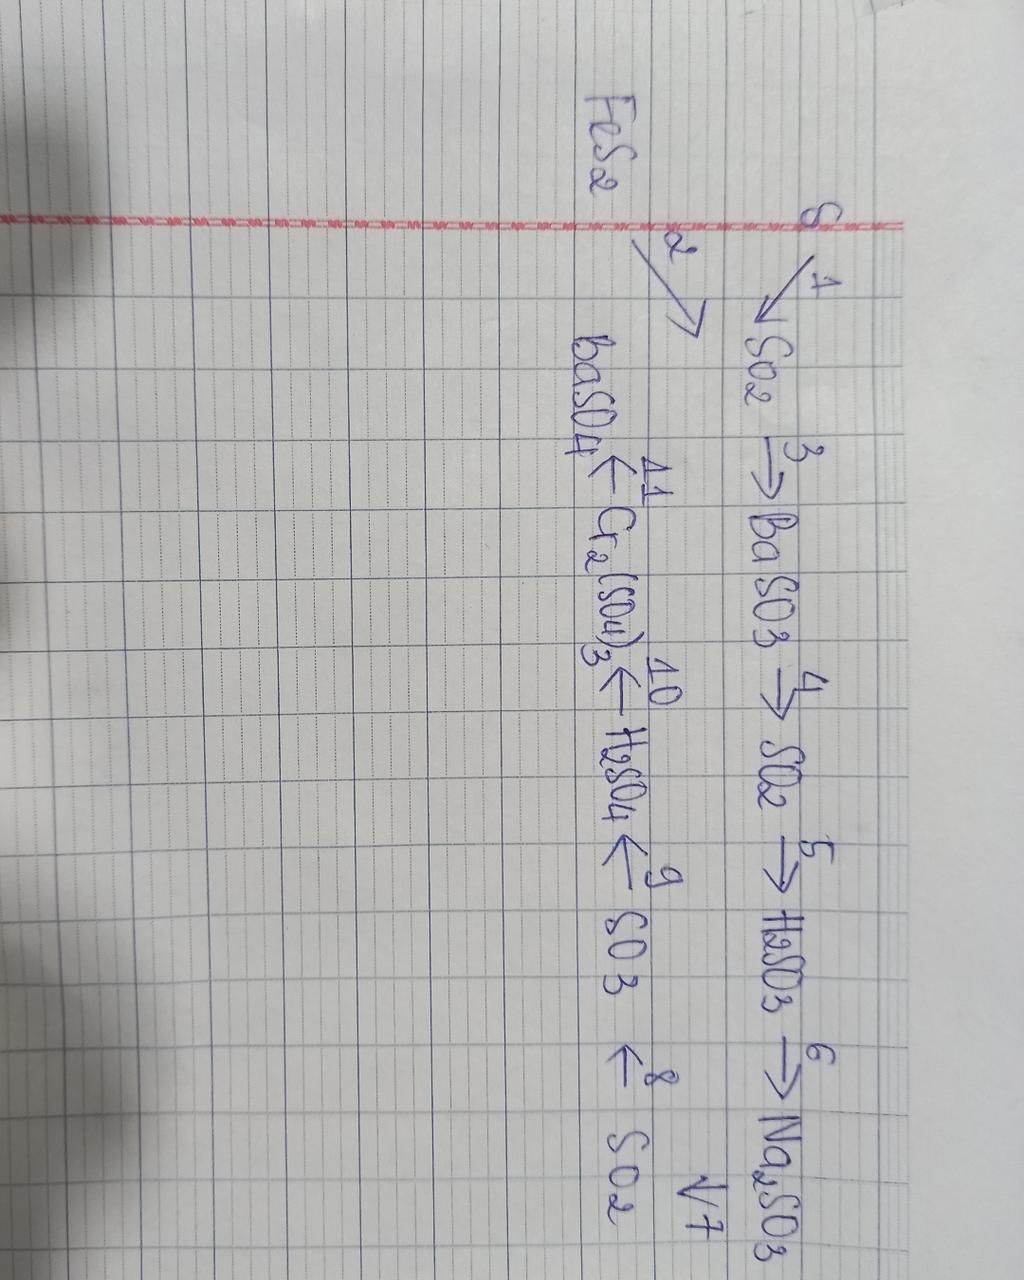 S 1→ SO2 3→ BaSO3 4→ SO2 5→ H2SO3 6→ Na2SO3
2→ ↓7
FeS2 BaSO4 ←11 Cr2(SO4)3 ←10 H2SO4 ←9 SO3 ←8 SO2